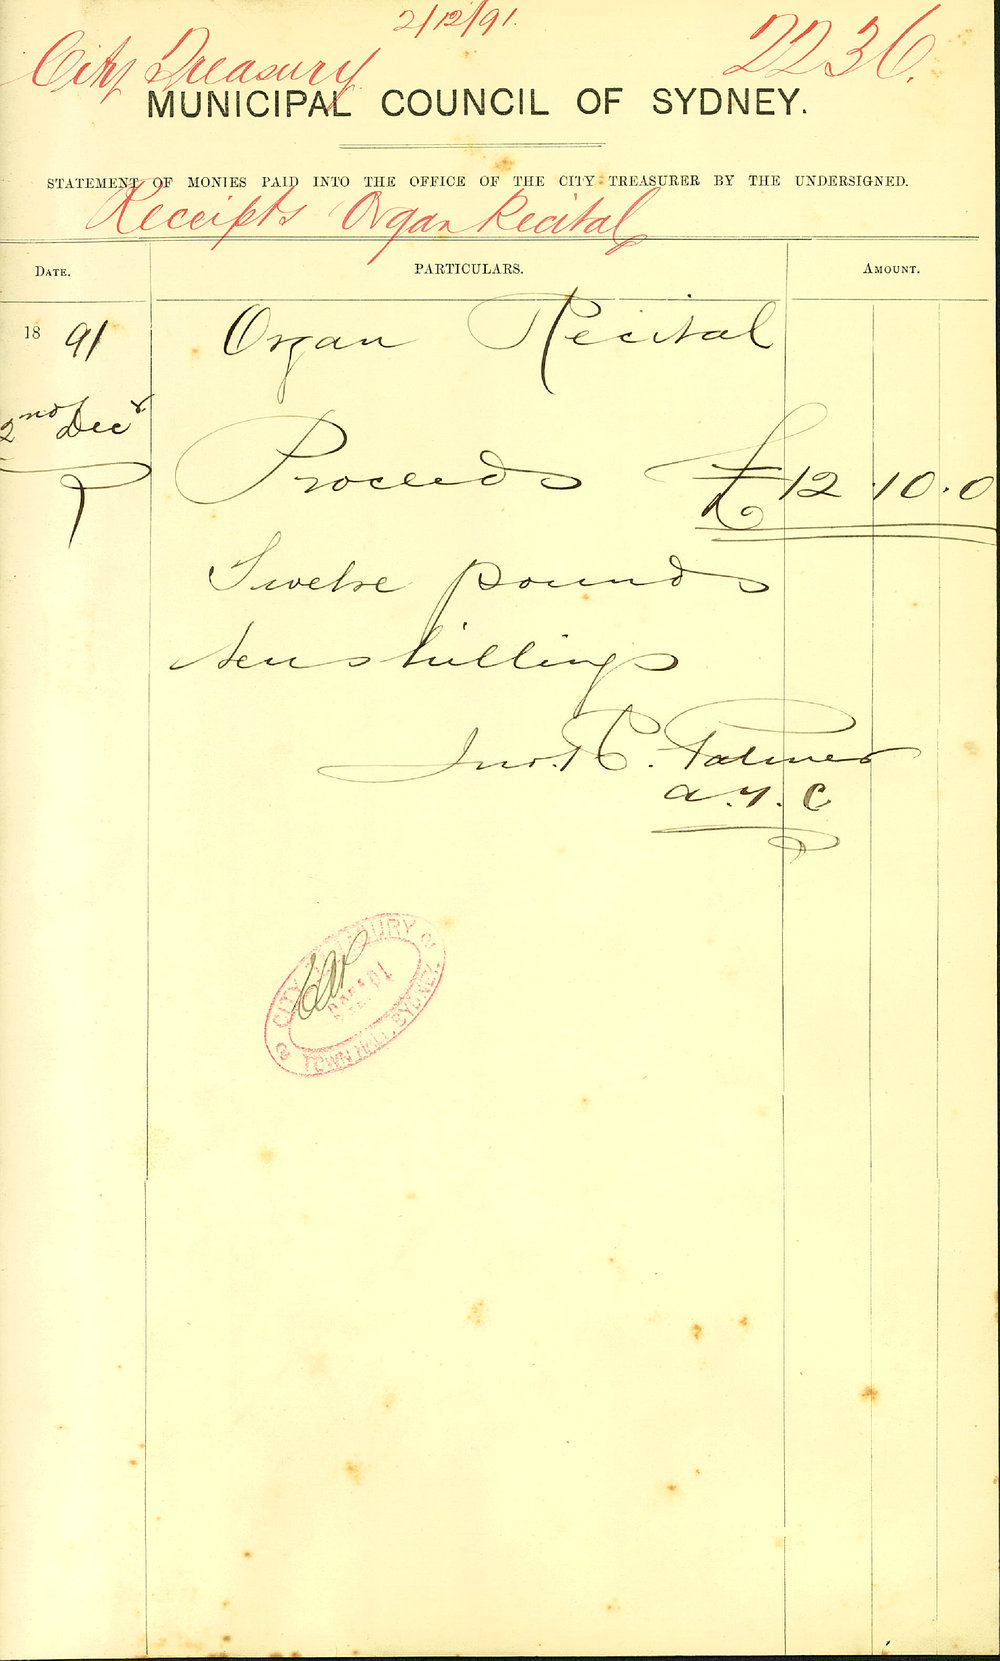 2/12/91.
City Treasury 2236.
MUNICIPAL COUNCIL OF SYDNEY.
STATEMENT OF MONIES PAID INTO THE OFFICE OF THE CITY TREASURER BY THE UNDERSIGNED.
Receipts Organ Recital
DATE. PARTICULARS. AMOUNT.
1891 Organ Recital
2nd Decr
Proceeds £12.10.0
Twelve pounds
ten shillings
Jno. R. Palmer
CITY TREASURY
TOWN HALL, SYDNEY.